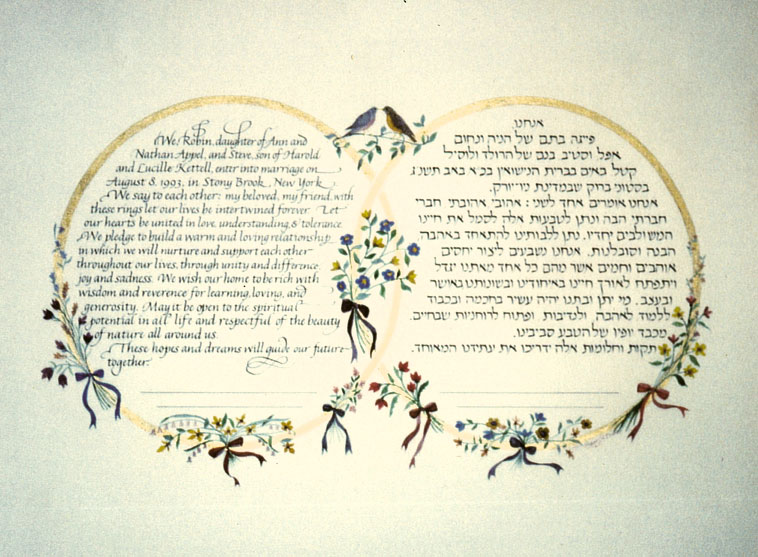 We, Robin, daughter of Ann and
Nathan Appel, and Steve, son of Harold
and Lucille Kettell, enter into marriage on
August 8, 1993, in Stony Brook, New York.
We say to each other: my beloved, my friend, with
these rings let our lives be intertwined forever. Let
our hearts be united in love, understanding, & tolerance.
We pledge to build a warm and loving relationship
in which we will nurture and support each other
throughout our lives, through unity and difference,
joy and sadness. We wish our home to be rich with
wisdom and reverence for learning, loving, and
generosity. May it be open to the spiritual
potential in all life and respectful of the beauty
of nature all around us.
These hopes and dreams will guide our future
together.
אנחנו
פייגה בתם של חנה ונחום
אפל וסטיב בנם של הרולד ולוסיל
קטל באים בברית הנישואין בכ״א באב תשנ״ג
בסטוני ברוק שבמדינת ניו־יורק.
אנחנו אומרים אחד לשני: אהובי אהובתי חברי
חברתי הבה ונתן לטבעות אלה לסמל את חיינו
המשולבים יחדיו. נתן ללבותינו להתאחד באהבה
הבנה וסובלנות. אנחנו שבעים ליצור יחסים
אוהבים וחמים אשר מהם כל אחד מאתנו יגדל
ויתפתח לאורך חיינו באיחודינו ובשונותנו באושר
ובעצב. מי יתן ובתנו יהיה עשיר בחכמה ובכבוד
ללמוד לאהבה, ולנדיבות, ופתוח לרוחניות שבחיים.
מכבד יופיו של הטבע סביבינו.
תקות וחלומות אלה ידריכו את עתידנו המאוחד.